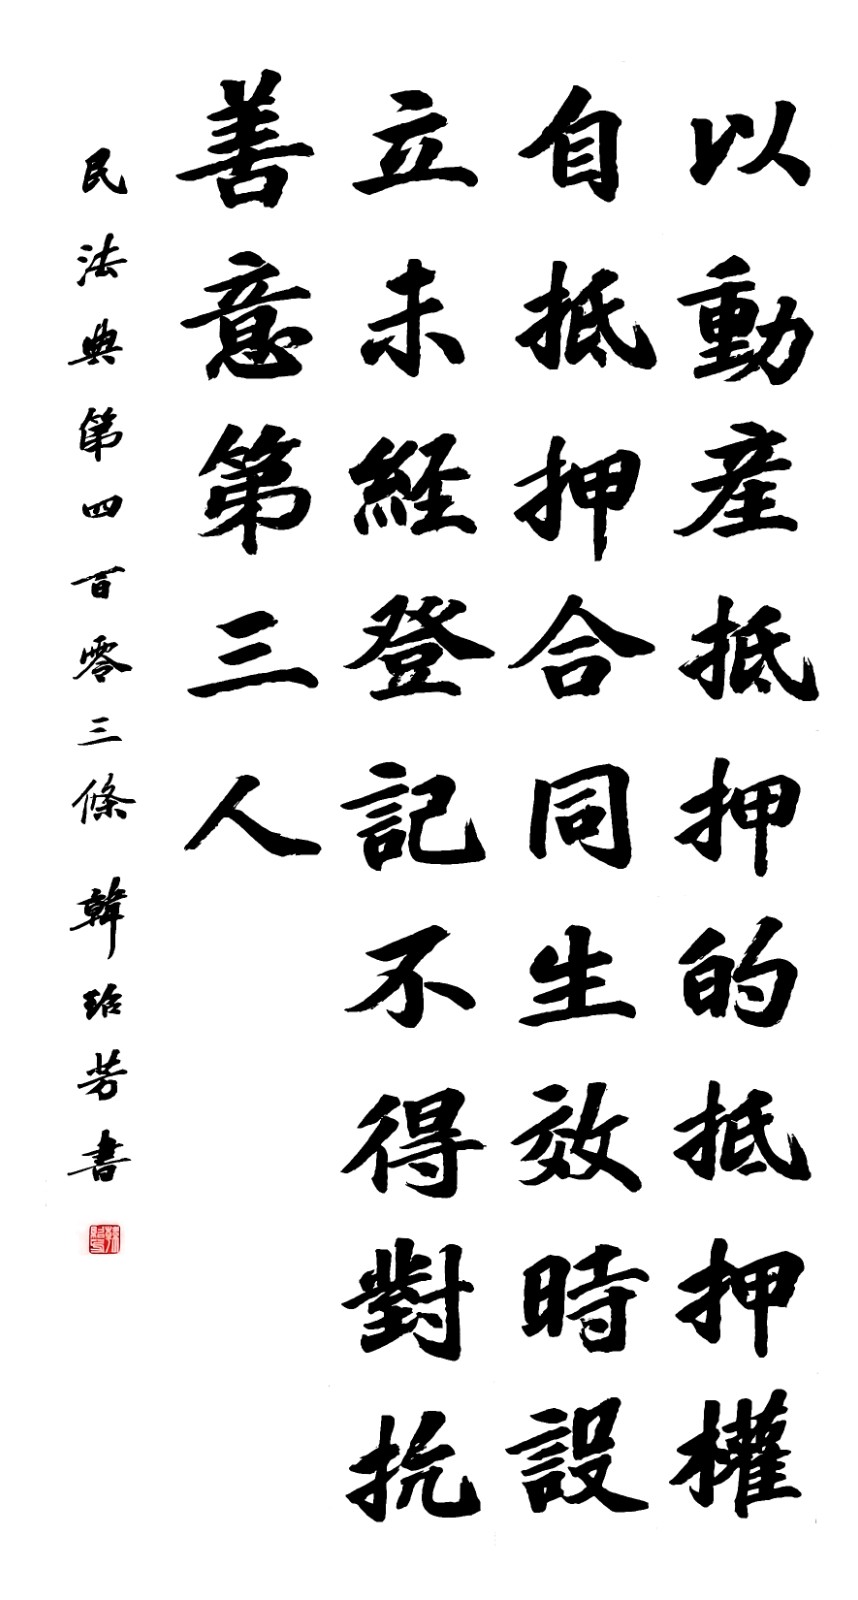 以動產抵押的抵押權
自抵押合同生效時設
立未經登記不得對抗
善意第三人
民法典第四百零三條 韓珆芳書